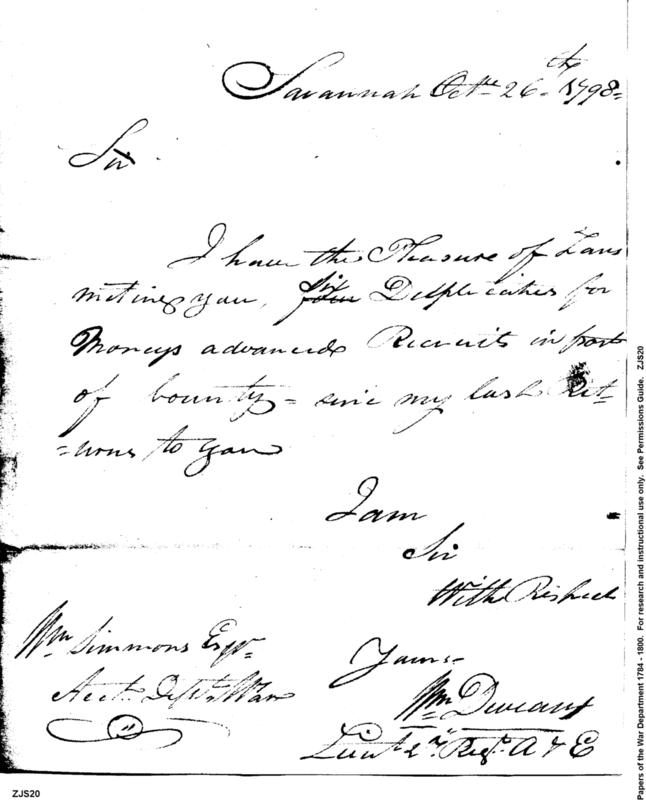 Savannah Octr. 26th 1798
Sir
I have the Pleasure of Tans
miting you, six four Duplicates for
Moneys advanced Recruits in part
of bounty = sinc my last Ret=
=urns to you
I am
Sir
With Respect
Yours
Wm
Lieut 2nd Regt A & E
Wm Simmons Esqr.
Acct. Dept. War
ZJS20
Papers of the War Department 1784 - 1800. For research and instructional use only. See Permissions Guide. ZJS20